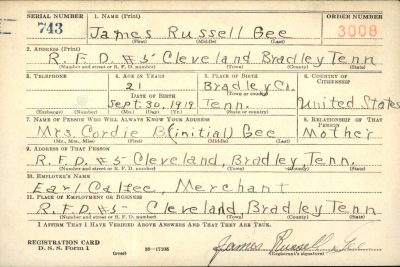 SERIAL NUMBER 1. NAME (Print) ORDER NUMBER
743 James Russell Gee 3008
(First) (Middle) (Last)
2. ADDRESS (Print)
R.F.D. #5- Cleveland Bradley Tenn
(Number and street or R. F. D. number) (Town) (County) (State)
3. TELEPHONE 4. AGE IN YEARS 5. PLACE OF BIRTH 6. COUNTRY OF CITIZENSHIP
21 Bradley Co.
DATE OF BIRTH (Town or county)
Sept. 30, 1919 Tenn. United States
(Exchange) (Number) (Mo.) (Day) (Yr.) (State or country)
7. NAME OF PERSON WHO WILL ALWAYS KNOW YOUR ADDRESS 8. RELATIONSHIP OF THAT PERSON
Mrs. Cordie B(initial) Gee Mother
(Mr., Mrs., Miss) (First) (Middle) (Last)
9. ADDRESS OF THAT PERSON
R.F.D. #5- Cleveland, Bradley Tenn.
(Number and street or R. F. D. number) (Town) (County) (State)
10. EMPLOYER'S NAME
Earl Merchant
11. PLACE OF EMPLOYMENT OR BUSINESS
R.F.D. #5- Cleveland Bradley Tenn
(Number and street or R. F. D. number) (Town) (County) (State)
I AFFIRM THAT I HAVE VERIFIED ABOVE ANSWERS AND THAT THEY ARE TRUE.
REGISTRATION CARD
D. S. S. Form 1 16-17105 James Russell Gee
(Registrant's signature)